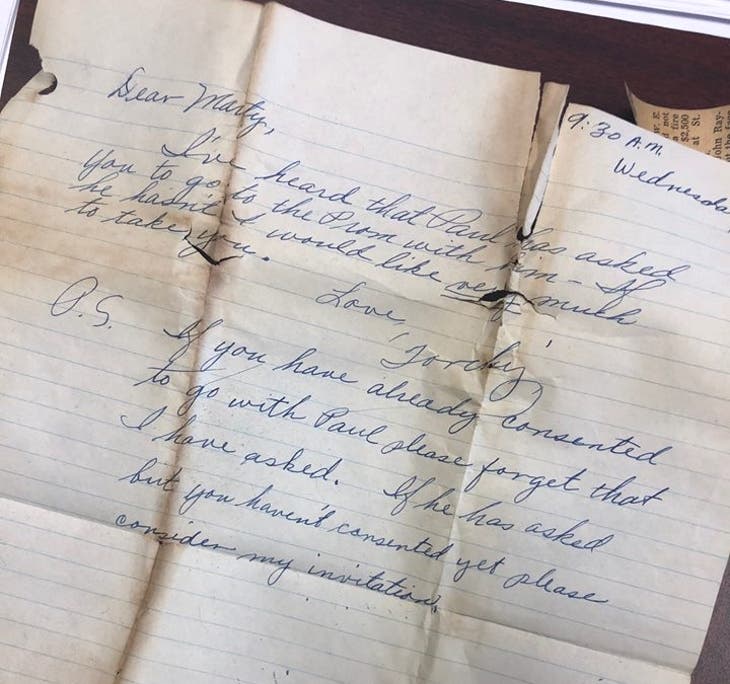 9:30 A.M.
Wednesda
Dear Marty,
I've heard that Paul has asked
you to go to the Prom with him - If
he hasn't I would like very much
to take you.
Love,
'Torchy'
P.S. If you have already consented
to go with Paul please forget that
I have asked. If he has asked
but you haven't consented yet please
consider my invitation.
W. E.
not
a fire
$2,500
at St.
ohn Ray-